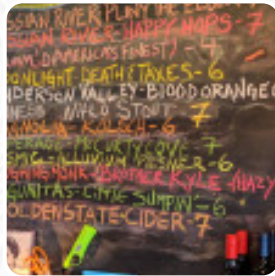 SSIAN RIVER-PLINY THE ELDER
SSIAN RIVER-HAPPY HOPS-7
AM(DAMERICA'S FINEST)-4
OONLIGHT DEATH & TAXES-6
NDERSON VALLEY-BLOOD ORANGE G
NITRO STOUT 7
KOLSCH-6
7
SMIC-ALLUVIUM PILSNER-6
BROTHER KYLE (HAZY
GUNITAS-CITRIC SUMPIN-6
OLDENSTATE-CIDER-7